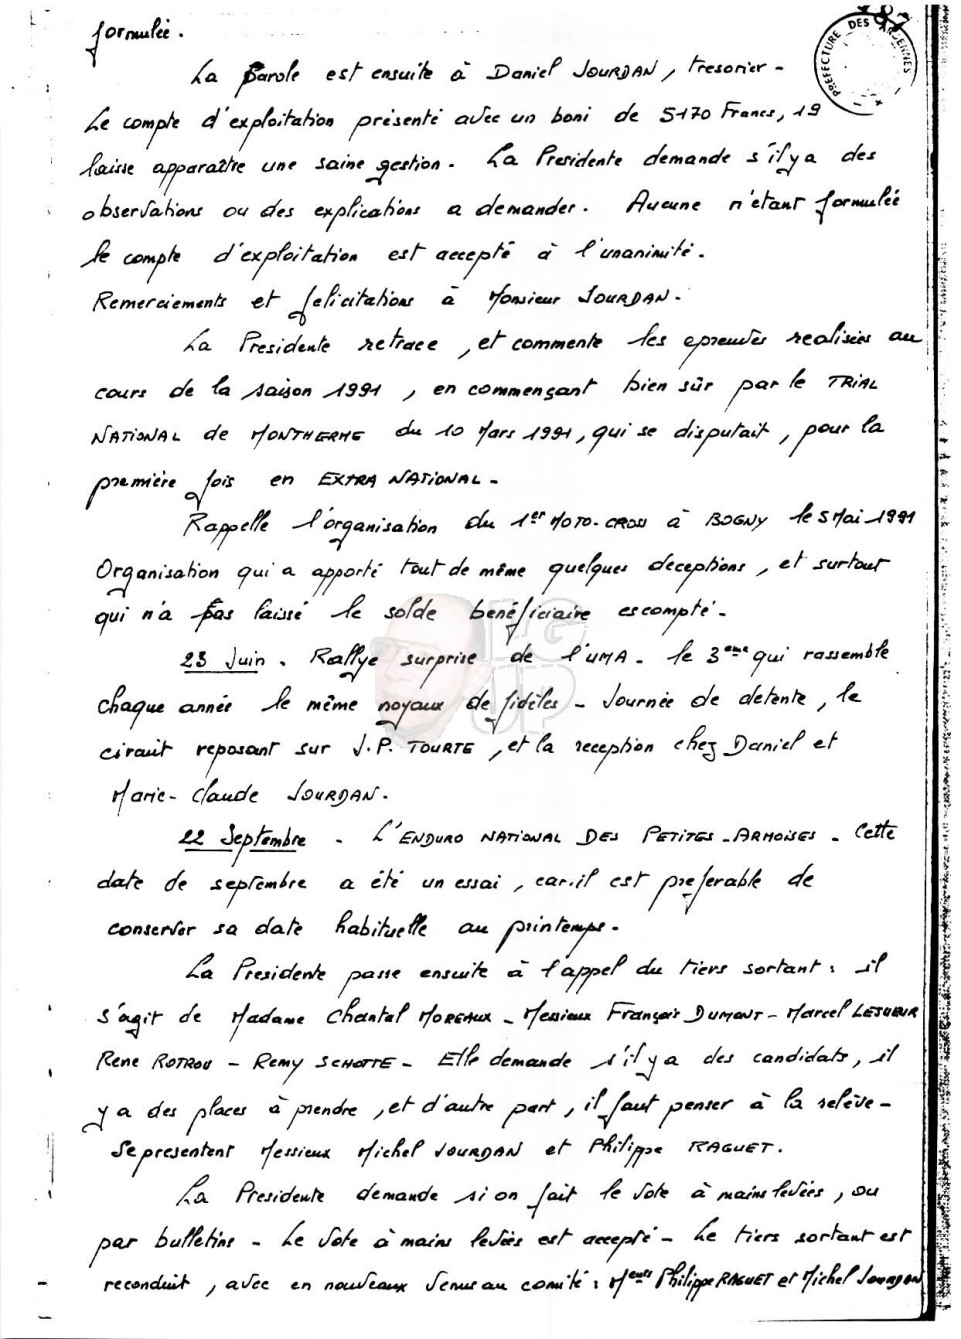 187
PREFECTURE DES ARDENNES
formulée.
La Parole est ensuite à Daniel JOURDAN, tresorier -
Le compte d'exploitation présenté avec un boni de 5170 Francs, 19
laisse apparaître une saine gestion - La Presidente demande s'il y a des
observations ou des explications a demander. Aucune n'étant formulée
le compte d'exploitation est accepté à l'unanimité.
Remerciements et felicitations à Monsieur JOURDAN.
La Presidente retrace, et commente les epreuves realisées au
cours de la saison 1991, en commençant bien sûr par le TRIAL
NATIONAL de MONTHERME du 10 Mars 1991, qui se disputait, pour la
première fois en EXTRA NATIONAL -
Rappelle l'organisation du 1er MOTO-CROSS à BOGNY le 5 Mai 1991
Organisation qui a apporté tout de même quelques deceptions, et surtout
qui n'a pas laissé le solde bénéficiaire escompté.
23 Juin. Rallye surprise de l'UMA - le 3eme qui rassemble
chaque année le même noyaux de fidèles - Journée de detente, le
circuit reposant sur J.P. TOURTE, et la reception chez Daniel et
Marie-Claude JOURDAN.
22 Septembre - L'ENDURO NATIONAL DES PETITES-ARMOISES - Cette
date de septembre a été un essai, car il est preferable de
conserver sa date habituelle au printemps -
La Presidente passe ensuite à l'appel du tiers sortant : il
s'agit de Madame Chantal MOREAUX - Messieux François DUMONT - Marcel LESUEUR
Rene ROTROU - Remy SCHOTTE - Elle demande s'il y a des candidats, il
y a des places à prendre, et d'autre part, il faut penser à la relève -
Se presentent Messieux Michel JOURDAN et Philippe RAGUET.
La Presidente demande si on fait le vote à mains levées, ou
par bulletins - Le vote à mains levées est accepté - Le tiers sortant est
reconduit, avec en nouveaux venus au comité : Meurs Philippe RAGUET et Michel JOURDAN
LG
UP